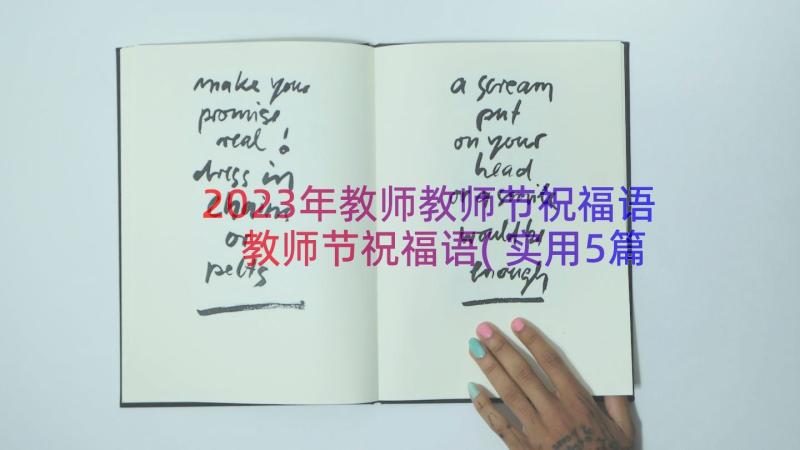 make your
promise
real!
dress in
chains
or
pelts
a scream
put
on your
head
or a smile
would be
enough
2023年教师教师节祝福语
教师节祝福语(实用5篇